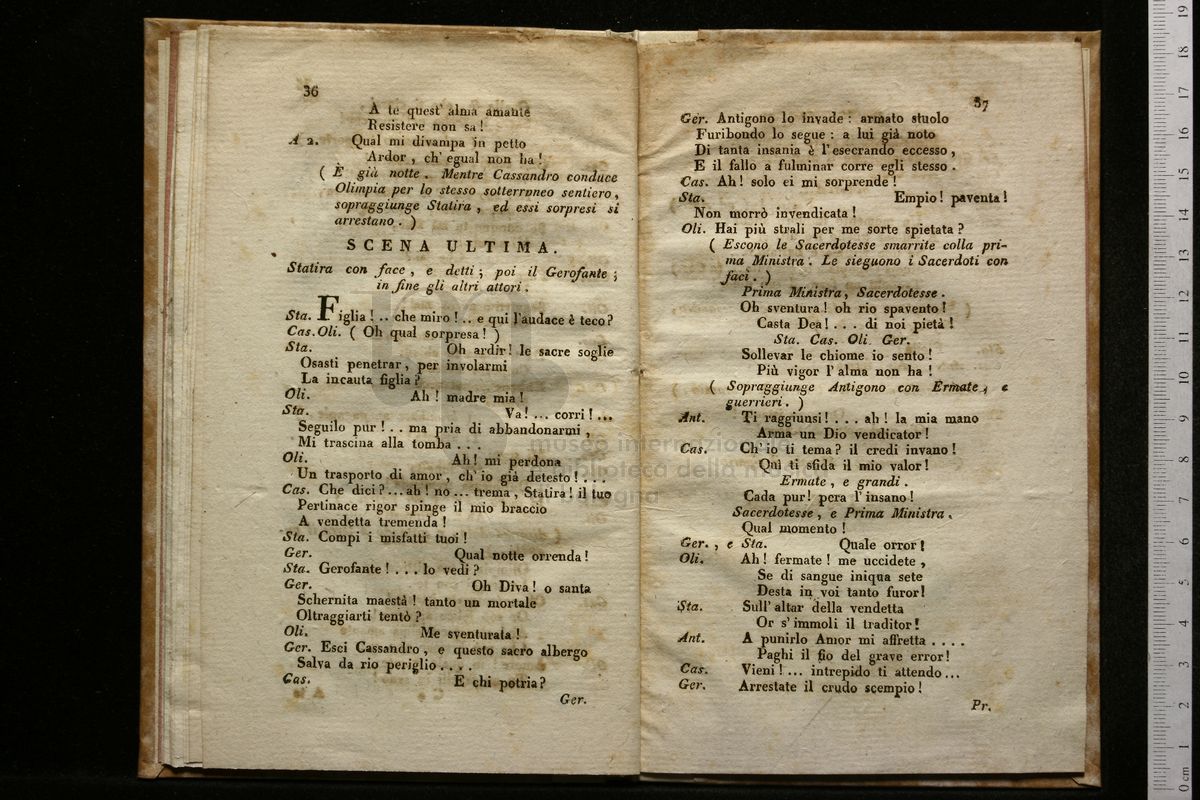 36
A te quest' alma amante
Resistere non sa!
A 2. Qual mi divampa in petto
Ardor, ch' egual non ha!
( È già notte. Mentre Cassandro conduce
Olimpia per lo stesso sotterraneo sentiero,
sopraggiunge Statira, ed essi sorpresi si
arrestano. )
SCENA ULTIMA.
Statira con face, e detti; poi il Gerofante;
in fine gli altri attori.
Sta. Figlia! .. che miro! .. e qui l'audace è teco?
Cas. Oli. ( Oh qual sorpresa! )
Sta. Oh ardir! le sacre soglie
Osasti penetrar, per involarmi
La incauta figlia?
Oli. Ah! madre mia!
Sta. Va! ... corri! ...
Seguilo pur! .. ma pria di abbandonarmi,
Mi trascina alla tomba ...
Oli. Ah! mi perdona
Un trasporto di amor, ch' io già detesto! ...
Cas. Che dici? ... ah! no ... trema, Statira! il tuo
Pertinace rigor spinge il mio braccio
A vendetta tremenda!
Sta. Compi i misfatti tuoi!
Ger. Qual notte orrenda!
Sta. Gerofante! ... lo vedi?
Ger. Oh Diva! o santa
Schernita maestà! tanto un mortale
Oltraggiarti tentò?
Oli. Me sventurata!
Ger. Esci Cassandro, e questo sacro albergo
Salva da rio periglio ....
Cas. E chi potria?
Ger.
37
Ger. Antigono lo invade: armato stuolo
Furibondo lo segue: a lui già noto
Di tanta insania è l'esecrando eccesso,
E il fallo a fulminar corre egli stesso.
Cas. Ah! solo ei mi sorprende!
Sta. Empio! paventa!
Non morrò invendicata!
Oli. Hai più strali per me sorte spietata?
( Escono le Sacerdotesse smarrite colla pri-
ma Ministra. Le sieguono i Sacerdoti con
faci. )
Prima Ministra, Sacerdotesse.
Oh sventura! oh rio spavento!
Casta Dea! ... di noi pietà!
Sta. Cas. Oli. Ger.
Sollevar le chiome io sento!
Più vigor l' alma non ha!
( Sopraggiunge Antigono con Ermate, e
guerrieri. )
Ant. Ti raggiunsi! ... ah! la mia mano
Arma un Dio vendicator!
Cas. Ch' io ti tema? il credi invano!
Qui ti sfida il mio valor!
Ermate, e grandi.
Cada pur! pera l' insano!
Sacerdotesse, e Prima Ministra.
Qual momento!
Ger., e Sta. Quale orror!
Oli. Ah! fermate! me uccidete,
Se di sangue iniqua sete
Desta in voi tanto furor!
Sta. Sull' altar della vendetta
Or s' immoli il traditor!
Ant. A punirlo Amor mi affretta ....
Paghi il fio del grave error!
Cas. Vieni! ... intrepido ti attendo ...
Ger. Arrestate il crudo scempio!
Pr.
museo internazionale
biblioteca della musica
bologna
0 cm 1 2 3 4 5 6 7 8 9 10 11 12 13 14 15 16 17 18 19